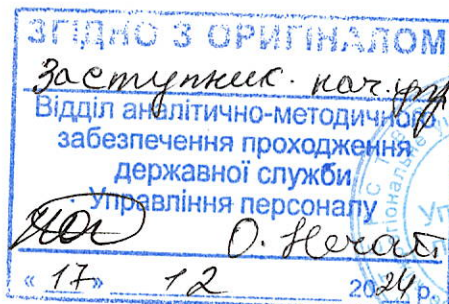 ЗГІДНО З ОРИГІНАЛОМ
Заступник нач.
Відділ аналітично-методичного
забезпечення проходження
державної служби
Управління персоналу
О.
« 17 » 12 2024 р.